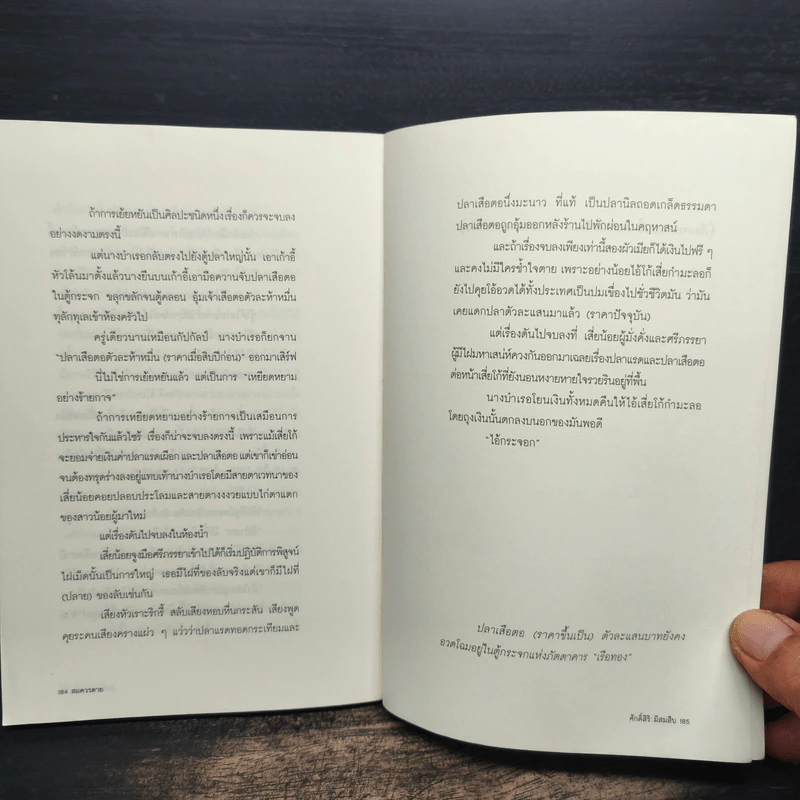 ถ้าการเย้ยหยันเป็นศิลปะชนิดหนึ่งเรื่องก็ควรจะจบลง
อย่างงดงามตรงนี้
แต่นางบำเรอกลับตรงไปยังตู้ปลาใหญ่นั้น เอาเก้าอี้
หัวโล้นมาตั้งแล้วนางยืนบนเก้าอี้เอามือควานจับปลาเสือตอ
ในตู้กระจก ขลุกขลักจนตู้คลอน อุ้มเจ้าเสือตอตัวละห้าหมื่น
ทุลักทุเลเข้าห้องครัวไป
ครู่เดียวนานเหมือนกัปกัลป์ นางบำเรอก็ยกจาน
“ปลาเสือตอตัวละห้าหมื่น (ราคาเมื่อสิบปีก่อน)” ออกมาเสิร์ฟ
นี่ไม่ใช่การเย้ยหยันแล้ว แต่เป็นการ “เหยียดหยาม
อย่างร้ายกาจ”
ถ้าการเหยียดหยามอย่างร้ายกาจเป็นเสมือนการ
ประหารใจกันแล้วไซร้ เรื่องก็น่าจะจบลงตรงนี้ เพราะแม้เสี่ยโก้
จะยอมจ่ายเงินค่าปลาแรดเผือก และปลาเสือตอ แต่เขาก็เข่าอ่อน
จนต้องทรุดร่างลงอยู่แทบเท้านางบำเรอโดยมีสายตาเวทนาของ
เสี่ยน้อยคอยปลอบประโลมและสายตางงงวยแบบไก่ตาแตก
ของสาวน้อยผู้มาใหม่
แต่เรื่องดันไปจบลงในห้องน้ำ
เสี่ยน้อยจูงมือศรีภรรยาเข้าไปได้ก็เริ่มปฏิบัติการพิสูจน์
ไฝเม็ดนั้นเป็นการใหญ่ เธอมีไฝที่ของลับจริงแต่เขาก็มีไฝที่
(ปลาย) ของลับเช่นกัน
เสียงหัวเราะริกรี้ สลับเสียงหอบหื่นกระสัน เสียงพูด
คุยระคนเสียงครางแผ่ว ๆ แว่วว่าปลาแรดทอดกระเทียมและ
184 สมควรตาย
ปลาเสือตอนึ่งมะนาว ที่แท้ เป็นปลานิลถอดเกล็ดธรรมดา
ปลาเสือตอถูกอุ้มออกหลังร้านไปพักผ่อนในคฤหาสน์
และถ้าเรื่องจบลงเพียงเท่านี้สองผัวเมียก็ได้เงินไปฟรี ๆ
และคงไม่มีใครช้ำใจตาย เพราะอย่างน้อยไอ้โก้เสี่ยกำมะลอก็
ยังไปคุยโอ้อวดได้ทั้งประเทศเป็นปมเขื่องไปชั่วชีวิตมัน ว่ามัน
เคยแดกปลาตัวละแสนมาแล้ว (ราคาปัจจุบัน)
แต่เรื่องดันไปจบลงที่ เสี่ยน้อยผู้มั่งคั่งและศรีภรรยา
ผู้มีไฝมหาเสน่ห์ควงกันออกมาเฉลยเรื่องปลาแรดและปลาเสือตอ
ต่อหน้าเสี่ยโก้ที่ยังนอนหงายหายใจรวยรินอยู่ที่พื้น
นางบำเรอโยนเงินทั้งหมดคืนให้ไอ้เสี่ยโก้กำมะลอ
โดยถุงเงินนั้นตกลงบนอกของมันพอดี
“ไอ้กระจอก”
ปลาเสือตอ (ราคาขึ้นเป็น) ตัวละแสนบาทยังคง
อวดโฉมอยู่ในตู้กระจกแห่งภัตตาคาร “เรือทอง”
ศักดิ์สิริ มีสมสืบ 185